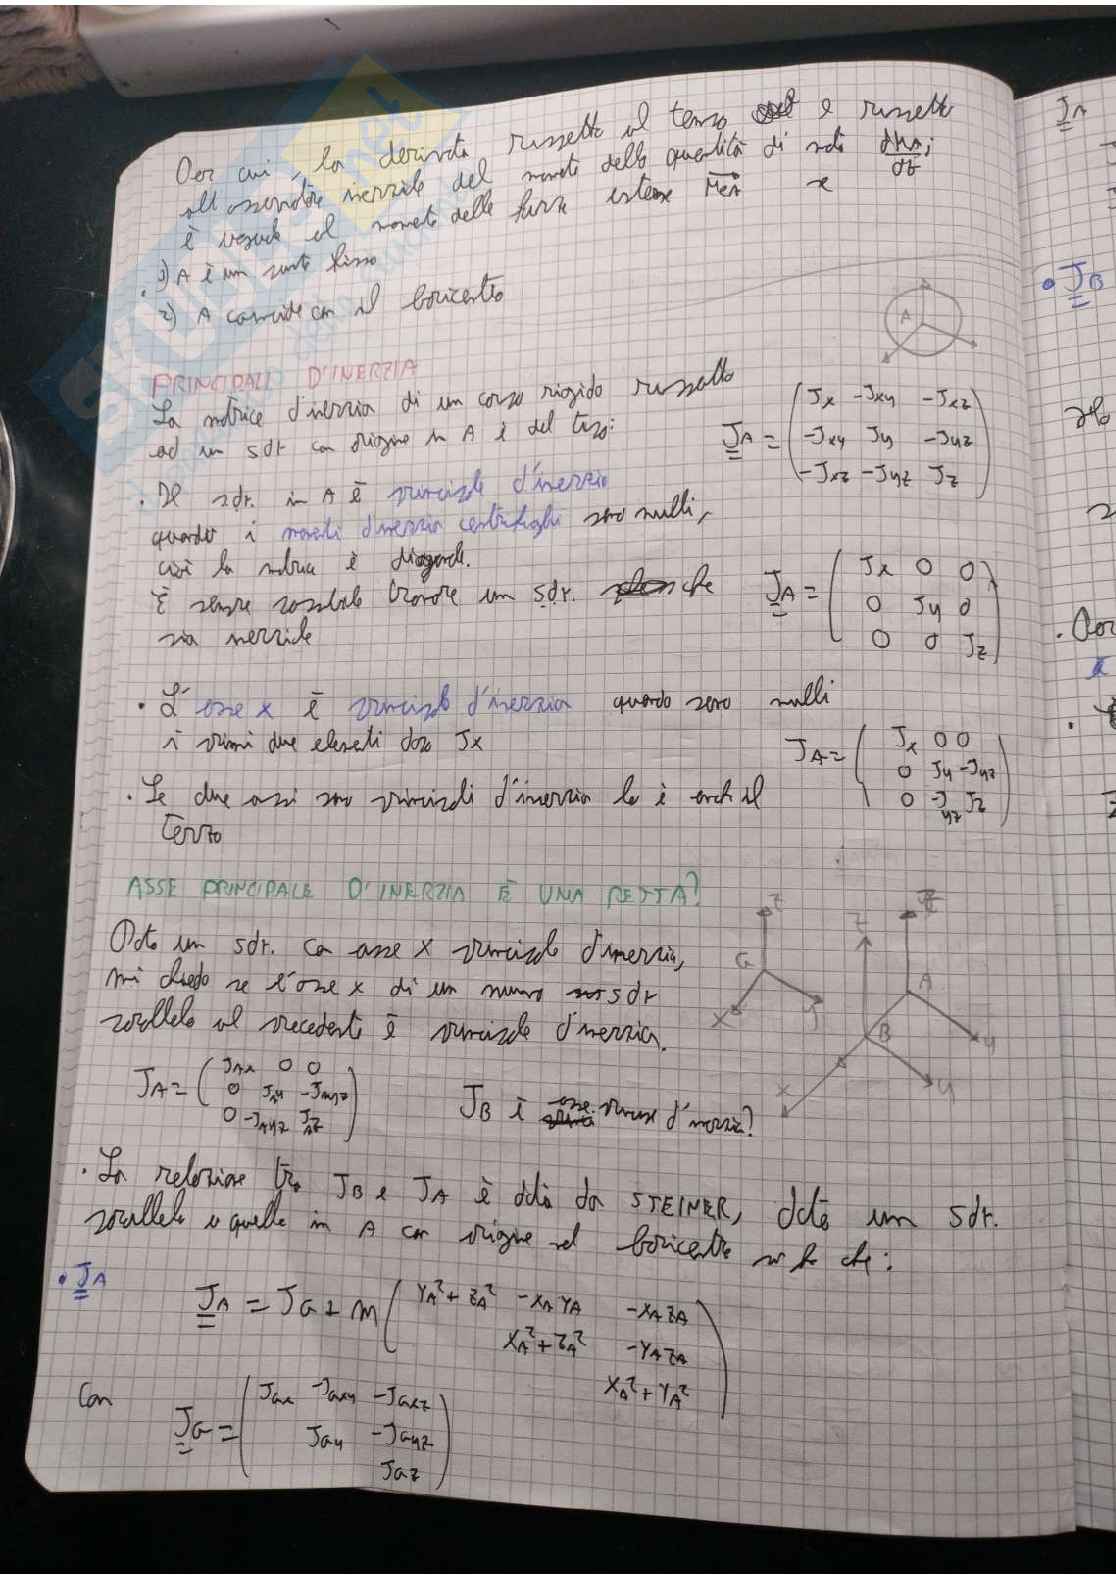 Per cui, la derivata rispetto al tempo e rispetto
all'osservatore inerziale del momento della quantità di moto dK_A/dt;
è uguale al momento delle forze esterne M_eA se
1) A è un punto fisso
2) A coincide con il baricentro
A
PRINCIPALI D'INERZIA
La matrice d'inerzia di un corpo rigido rispetto
ad un sdr con origine in A è del tipo:
J_A = ( J_x -J_xy -J_xz
-J_xy J_y -J_yz
-J_xz -J_yz J_z )
• Il sdr. in A è principale d'inerzia
quando i momenti d'inerzia centrifughi sono nulli,
cioè la matrice è diagonale.
È sempre possibile trovare un sdr. che
sia inerziale
J_A = ( J_x 0 0
0 J_y 0
0 0 J_z )
• L'asse x è principale d'inerzia quando sono nulli
i primi due elementi dopo J_x
J_A = ( J_x 0 0
0 J_y -J_yz
0 -J_yz J_z )
• Se due assi sono principali d'inerzia lo è anch il
terzo
ASSE PRINCIPALE D'INERZIA È UNA RETTA?
Dato un sdr. con asse x principale d'inerzia,
mi chiedo se l'asse x di un nuovo sdr
parallelo al precedente è principale d'inerzia.
z
G
x
y
z
z
A
B
y
y
x
J_A = ( J_Ax 0 0
0 J_Ay -J_Ayz
0 -J_Ayz J_Az )
J_B è asse d'inerzia?
• La relazione tra J_B e J_A è data da STEINER, dato un sdr.
parallelo a quello in A con origine nel baricentro si ha che:
• J_A
J_A = J_G + m ( Y_A² + Z_A² -X_A Y_A -X_A Z_A
X_A² + Z_A² -Y_A Z_A
X_A² + Y_A² )
Con
J_G = ( J_Gx -J_Gxy -J_Gxz
J_Gy -J_Gyz
J_Gz )
J_A
• J_B